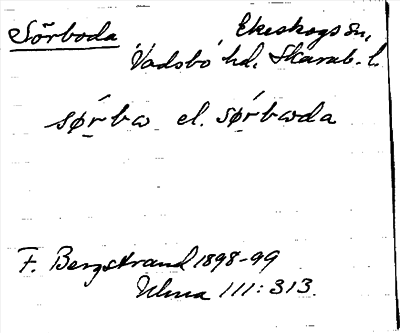 Sörboda Ekeskogs sn,
Vadsbo hd, Skarab. l.
sø̀rbω el. sǿrbωda
F. Bergstrand 1898-99
Ulma 111:313.